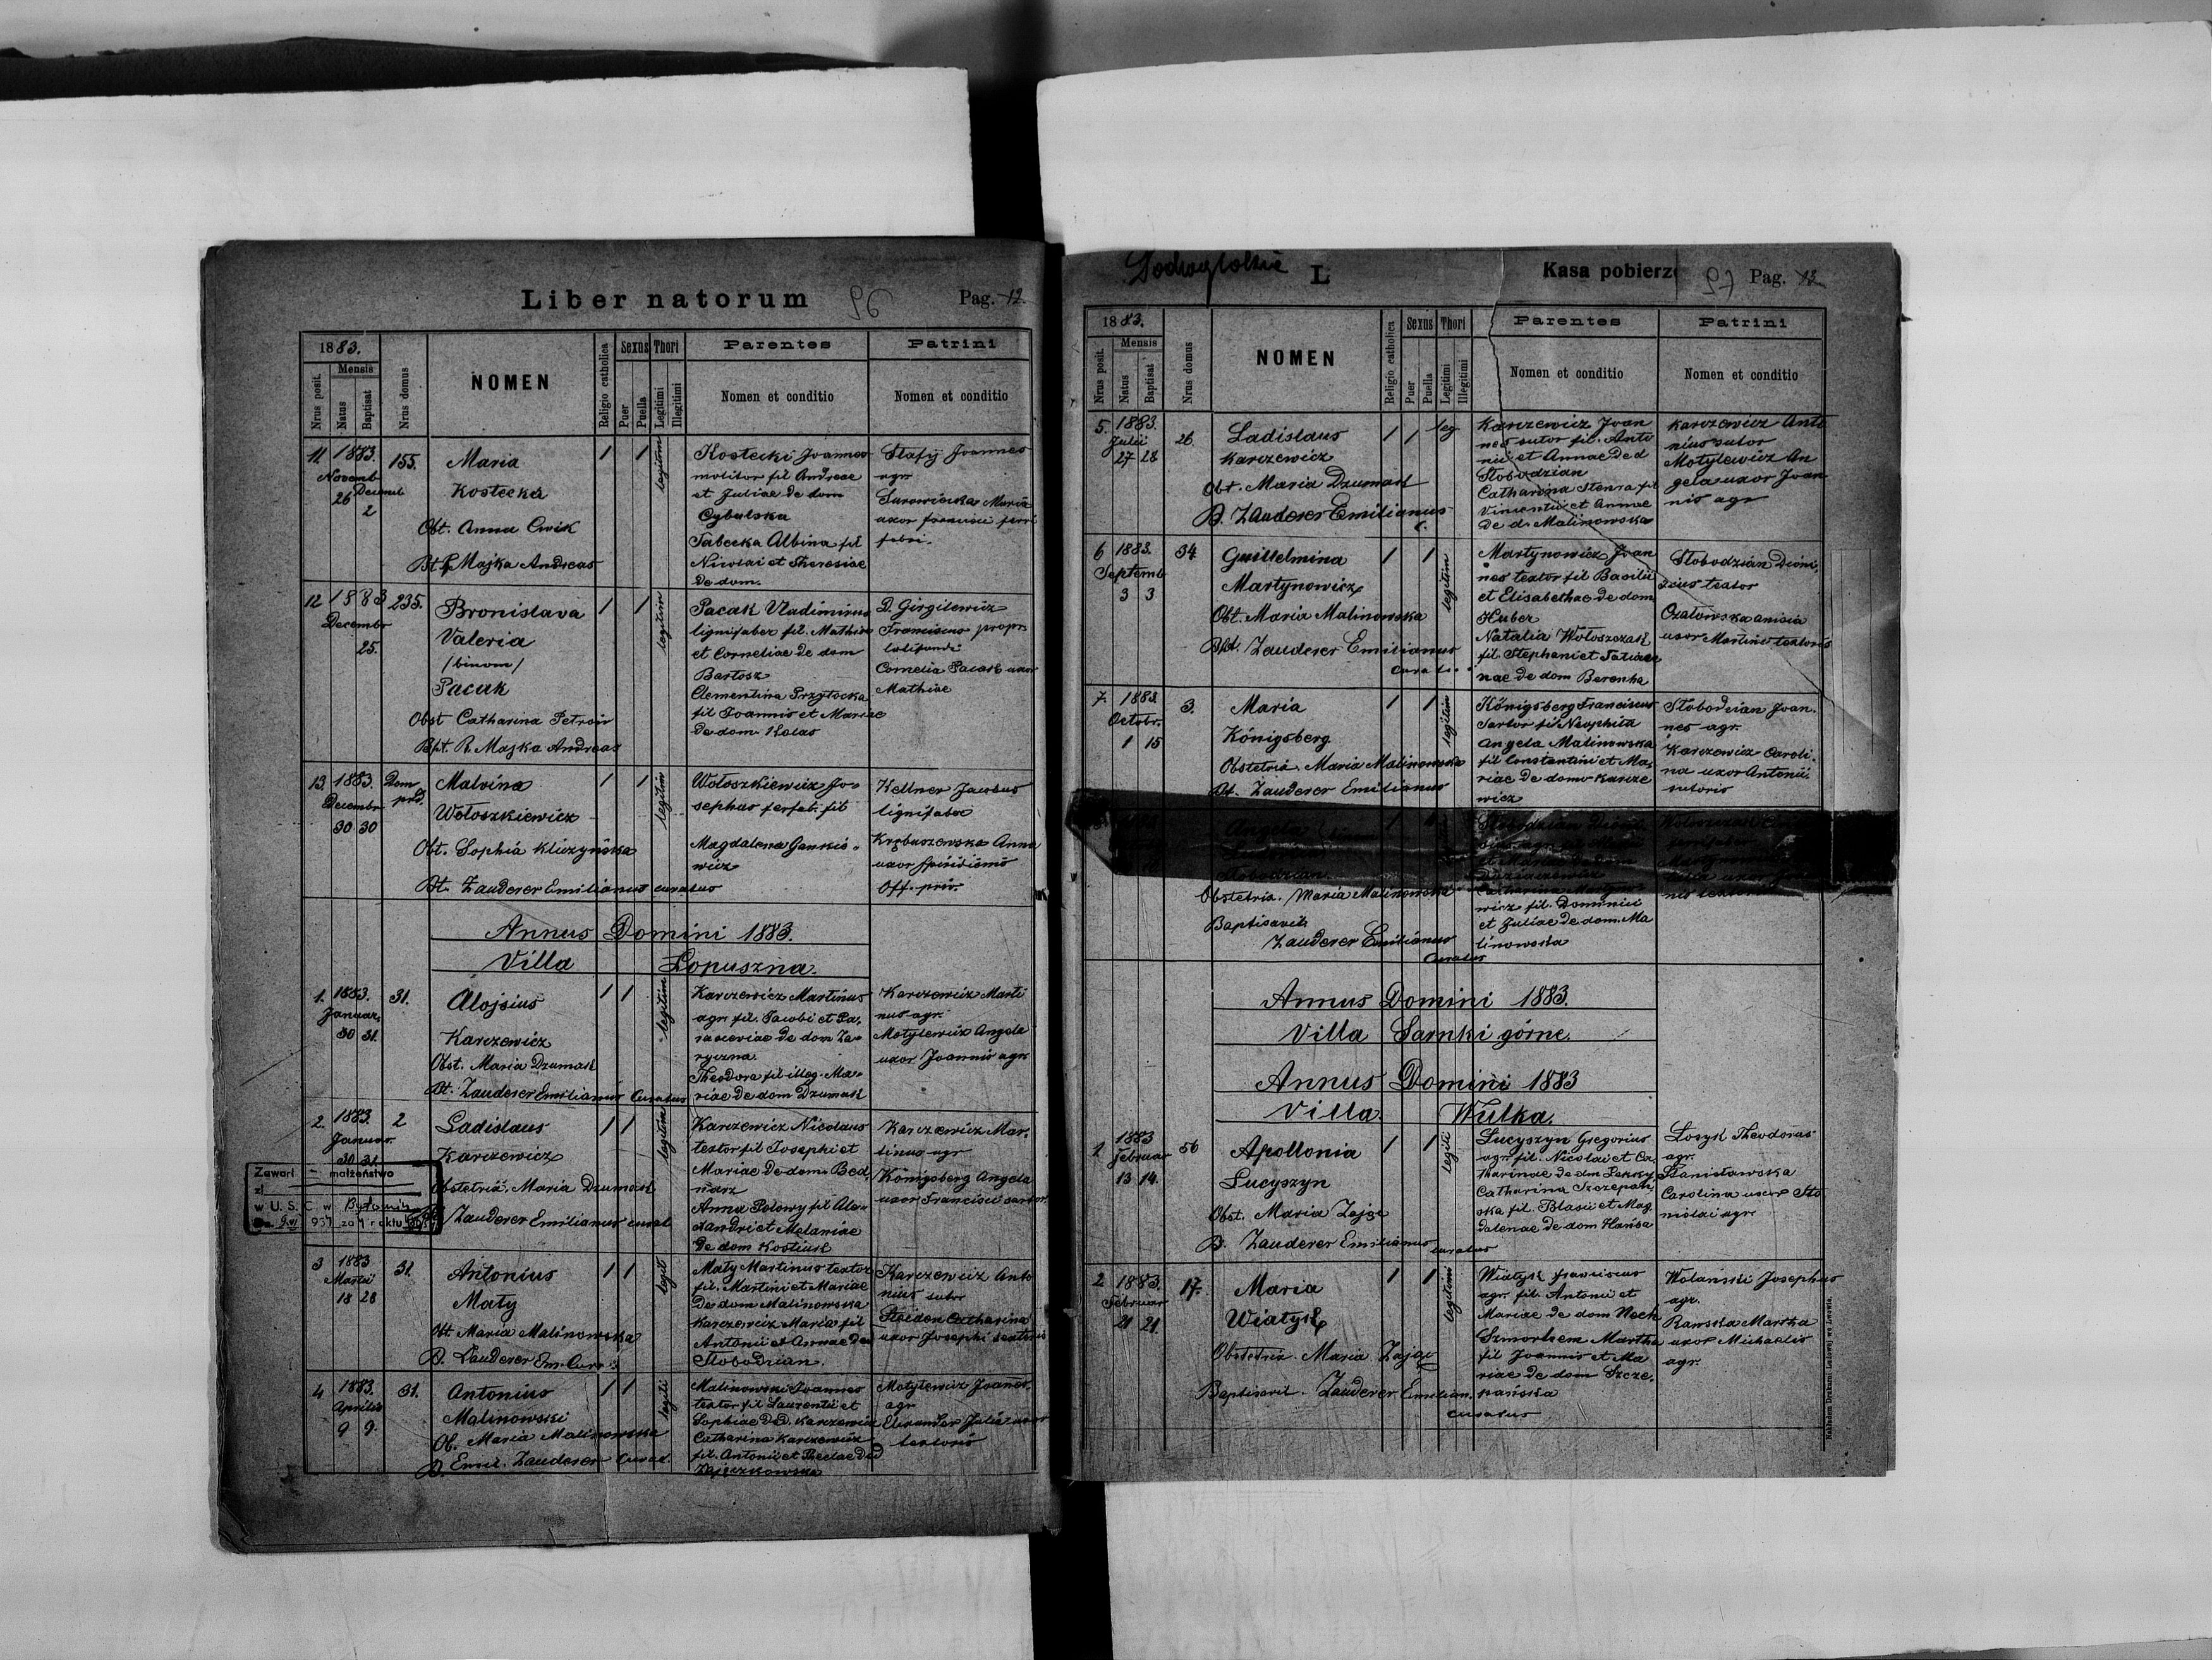 Liber natorum
96
Pag. 12.
1883.
Nrus posit.
Mensis
Natus
Baptisat
Nrus domus
NOMEN
Religio catholica
Sexus
Puer
Puella
Thori
Legitimi
Illegitimi
Parentes
Nomen et conditio
Patrini
Nomen et conditio
11. 1883.
Novemb
26 Decemb
2
155.
Maria
Kostecka
Obt. Anna Cwik
Bt. P. Majka Andreas
/ /
legitim
Kostecki Joannes
molitor fil Andreae
et Juliae de dom
Cybulska
Tabecka Albina fil
Nicolai et Theresiae
de dom.
Joannes
agr.
Maria
uxor Francisci ferri
fabri.
12 1883
Decembr
25.
235.
Bronislava
Valeria
/binom/
Pacak
Obst Catharina Petrow
Bpt. R. Majka Andreas
/ /
legitim
Pacak Vladimirus
lignifaber fil. Mathiae
et Corneliae de dom
Bartosz
Clementina Przytocka
fil Joannis et Mariae
de dom Kolas
D. Girgilewicz
Franciscus propr.
Cornelia Pacak uxor
Mathiae
13. 1883.
Decembr
30 30
Dom
Malvina
Wołoszkiewicz
Obt. Sophia Kliczyńska
Bt. Zauderer Emilianus curatus
/ /
legitim
Wołoszkiewicz Jo-
sephus fil
Magdalena
wicz
Kellner Jacobus
lignifaber
Anna
uxor
Off. priv.
Annus Domini 1883.
Villa Lopuszna.
1. 1883.
Januar.
30 31.
31.
Alojsius
Karczewicz
Obst. Maria Dzumak
Bt. Zauderer Emilianus curatus
/ /
legitim
Karczewicz Martinus
agr. fil. Jacobi et Pa-
rasceviae de dom Za-
ryczna.
Theodora fil illeg. Ma-
riae de dom Dzumak
Karczewicz Marti
nus agr.
Motylewicz Angela
uxor Joannis agr
2. 1883.
Januar.
30 31.
2
Ladislaus
Karczewicz
Obstetrix. Maria Dzumak
Zauderer Emilianus curat
/ /
legitim
Karczewicz Nicolaus
textor fil Josephi et
Mariae de dom. Bed-
narz
Anna Polowy fil Ale-
xandri et Melaniae
de dom Kostiuk
Karczewicz Mar-
tinus agr
Königsberg Angela
uxor Francisci sartor.
Zawarł małżeństwo
z
w U. S. C. w Bytomiu
za nr aktu
3 1883
Martii
18 28
31.
Antonius
Maty
Obt Maria Malinowska
B. Zauderer Em. Cura
/ /
legit
Maty Martinus textor
fil. Martini et Mariae
de dom Malinowska
Karczewicz Maria fil
Antonii et Annae de d
Słobodzian.
Karczewicz Anto
nius sutor
Catharina
uxor Josephi textoris
4 1883.
Aprilis
9 9.
31.
Antonius
Malinowski
Ob. Maria Malinowska
B. Emil. Zauderer Curat.
/ /
legiti
Malinowski Joannes
textor fil Laurentii et
Sophiae de d. Karczewicz
Catharina Karczewicz
fil. Antonii et Theclae de d
Zajączkowska
Motylewicz Joannes.
agr
Julia uxor
textoris
L
Kasa pobierz
97
Pag. 13
1883.
Nrus posit.
Mensis
Natus
Baptisat
Nrus domus
NOMEN
Religio catholica
Sexus
Puer
Puella
Thori
Legitimi
Illegitimi
Parentes
Nomen et conditio
Patrini
Nomen et conditio
5. 1883.
Julii
27 28
26.
Ladislaus
Karczewicz
Obt. Maria Dzumak
B. Zauderer Emilianus
c.
/ /
leg
Karczewicz Joan
nes sutor fil. Anto
nii et Annae de d
Słobodzian
Catharina fil
Vincentii et Annae
de d. Malinowska
Karczewicz Anto
nius sutor
Motylewicz An
gela uxor Joan
nis agr
6 1883.
Septemb
3 3
34
Guillelmina
Martynowicz
Obt. Maria Malinowska
Bt. Zauderer Emilianus
curatus
/ /
legitim
Martynowicz Joan
nes textor fil Basilii
et Elisabethae de dom
Huber
Natalia Wołoszczak
fil. Stephani et Tatian
nae de dom Berenha
Słobodzian Dioni-
sius textor
uxor Martini textoris
7. 1883.
Octobr.
1 15
3.
Maria
Königsberg
Obstetrix. Maria Malinowska
Bt. Zauderer Emilianus
/ /
legitim
Königsberg Franciscus
sartor fil Neophita
Angela Malinowska
fil Constantini et Ma-
riae de domo Karcze
wicz
Słobodzian Joan-
nes agr.
Karczewicz Caroli-
na uxor Antonii
sutoris
Angela
Słobodzian.
Obstetrix. Maria Malinowska
Baptisavit
Zauderer Emilianus
Curatus
Catharina Martyno-
wicz fil. Dominici
et Juliae de dom. Ma
linowska
Annus Domini 1883.
Villa Sarnki górne.
Annus Domini 1883
Villa. Wulka.
1. 1883
Februar
13 14.
56
Apollonia
Lucyszyn
Obst. Maria Zając
B. Zauderer Emilianus curatus
/ /
legiti
Lucyszyn Gregorius
agr. fil. Nicolai et Ca-
tharinae de dom
Catharina Szczepań-
ska fil. Blasii et Mag
dalenae de dom Hańba
Łosyk Theodorus
agr.
Stanisławska
Carolina uxor
agr
2 1883.
Februar
21 21.
17.
Maria
Wiatyk
Obstetrix. Maria Zając
Baptisavit. Zauderer Emilian.
curatus
/ /
legitimi
Wiatyk Franciscus
agr. fil. Antonii et
Mariae de dom
Martha
fil Joannis et Ma
riae de dom Szcze-
pańska
Wolański Josephus
agr.
Martha
uxor Michaelis
agr.
Nakładem Drukarni Ludowej we Lwowie.